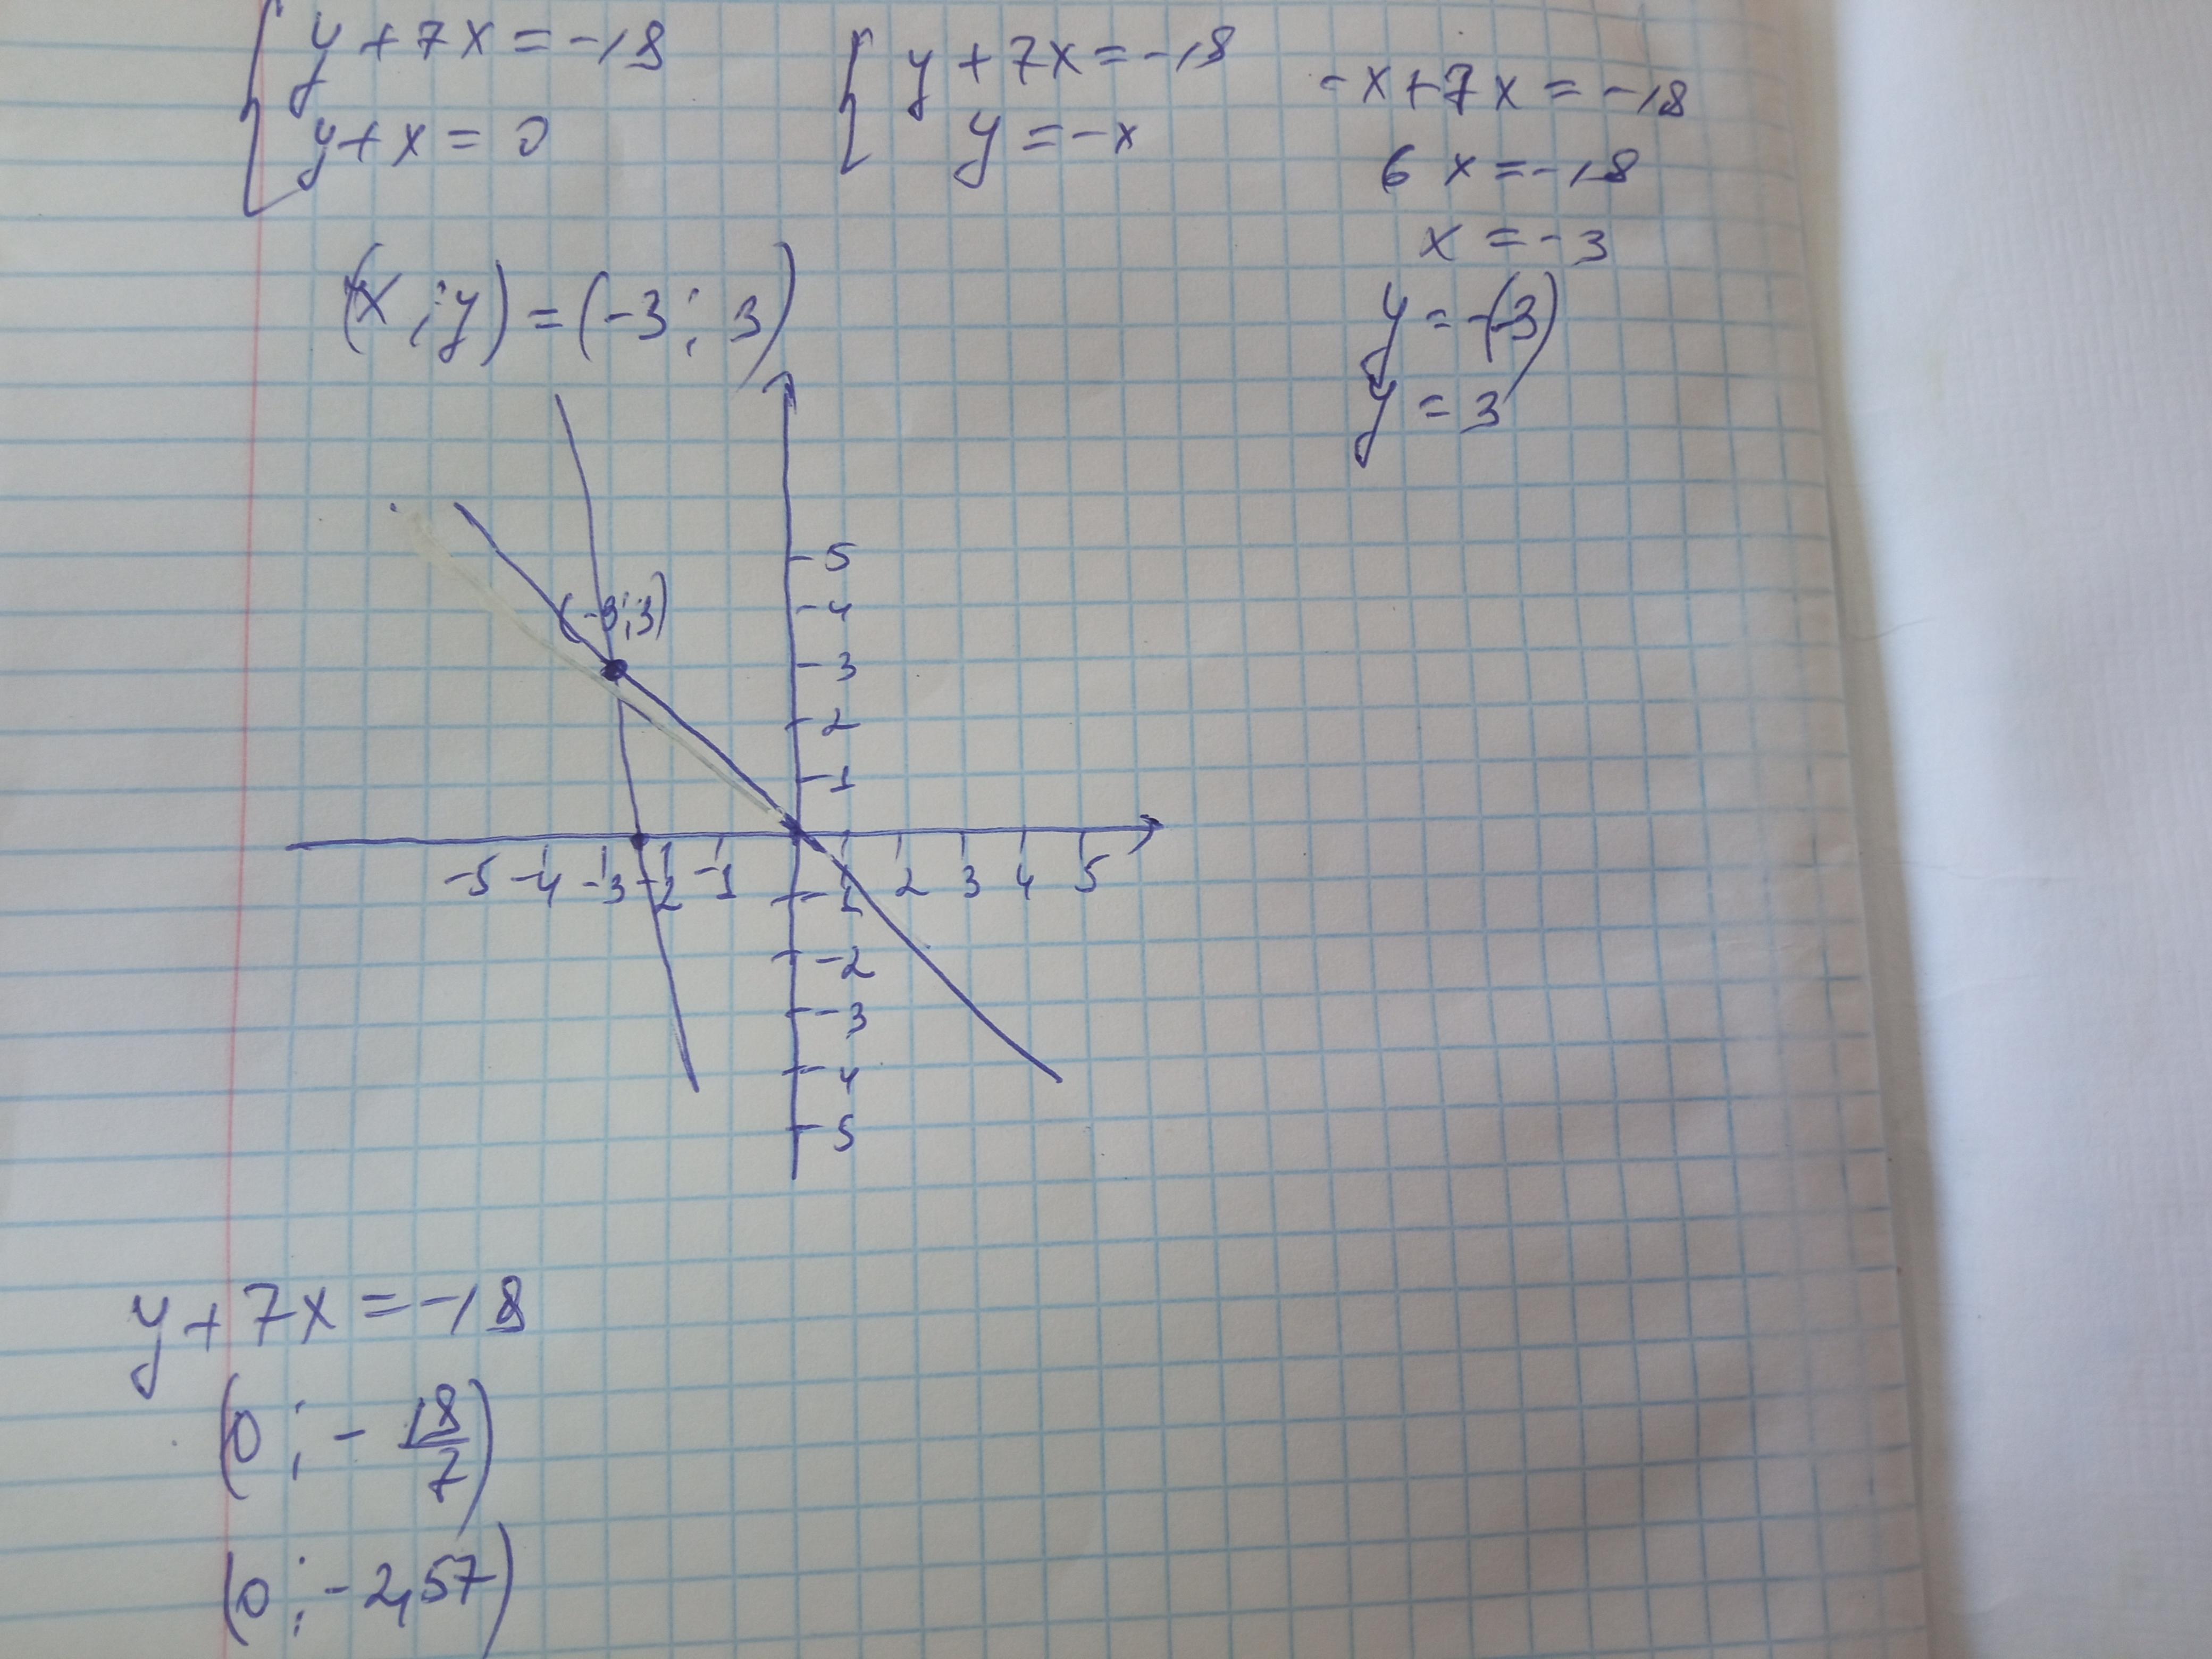 y + 7x = -18
y + x = 0
y + 7x = -18
y = -x
-x + 7x = -18
6x = -18
x = -3
y = -(-3)
y = 3
(x ; y) = (-3 ; 3)
(-3 ; 3)
5
4
3
2
1
-5 -4 -3 -2 -1 1 2 3 4 5
-1
-2
-3
-4
-5
y + 7x = -18
(0 ; - 18/7)
(0 ; -2,57)